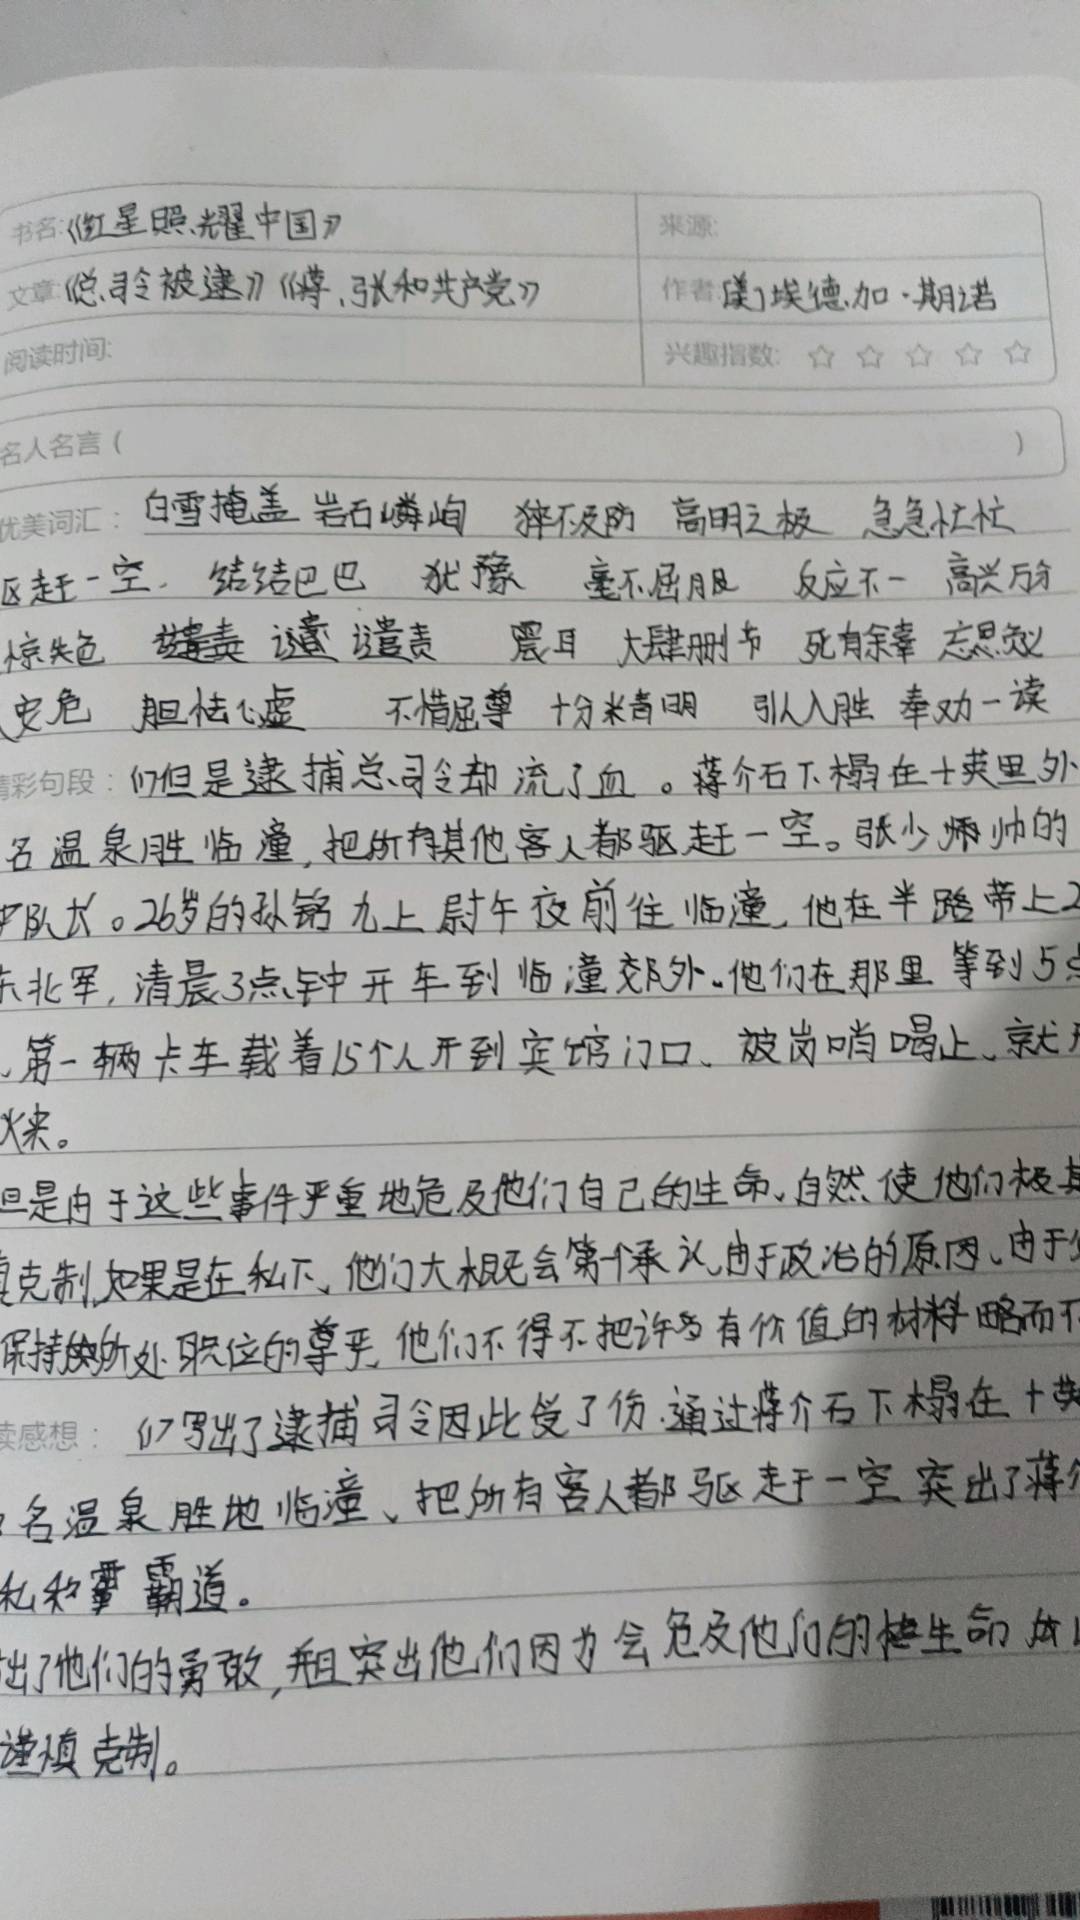 书名:《红星照耀中国》 来源:
文章:《总司令被逮》《蒋、张和共产党》 作者:[美]埃德加·斯诺
阅读时间: 兴趣指数: ☆ ☆ ☆ ☆ ☆
名人名言( )
优美词汇: 白雪掩盖 岩石嶙峋 猝不及防 高明之极 急急忙忙
区赶一空. 结结巴巴 犹豫 毫不屈服 反应不一 高兴万分
惊失色 谴责 震耳 大肆删节 死有余辜 忘恩负义
安危 胆怯心虚 不惜屈尊 十分精明 引人入胜 奉劝一读
精彩句段: (1)但是逮捕总司令却流了血。蒋介石下榻在十英里外
名温泉胜临潼,把所有其他客人都驱赶一空。张少帅的
队长。26岁的孙铭九上尉午夜前往临潼,他在半路带上2
东北军,清晨3点钟开车到临潼郊外.他们在那里等到5点
、第一辆卡车载着15个人开到宾馆门口、被岗哨喝止、就开
火来。
但是由于这些事件严重地危及他们自己的生命、自然使他们极其
慎克制,如果是在私下、他们大概会第一个承认,由于政治的原因、由于
保持所处职位的尊严,他们不得不把许多有价值的材料略而不
读感想: (1)写出了逮捕司令因此受了伤.通过蒋介石下榻在十英
名温泉胜地临潼、把所有客人都驱赶一空突出了蒋介
私和霸道。
出了他们的勇敢,且突出他们因为会危及他们的生命
谨慎克制。